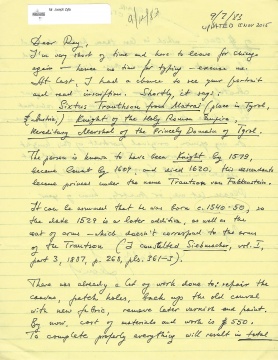 9/2/83
9/2/83
UPDATED 15 NOV 2015
Dear Ray,
I'm very short of time and have to leave for Chicago
again — hence no time for typing — excuse me.
At last, I had a chance to see your portrait
and read inscription. Shortly, it says:
Sixtus Trauthson from Matrai (place in Tyrol,
Austria), Knight of the Holy Roman Empire,
Hereditary Marshal of the Princely Domain of Tyrol.
The person is known to have been Knight by 1598,
became Count by 1609, and died 1620, his descendants
became princes under the name Trautson von Falkenstein.
It can be assumed that he was born c. 1540-50, so
the date 1529 is a later addition, as well as the
coat of arms — which doesn't correspond to the arms
of the Trautson (I consulted Siebmacher, vol. I,
part 3, 1887, p. 268, pls.
There was already a lot of work done to: repair the
canvas, patch holes, back up the old canvas
with new fabric, remove later varnish and paint.
By now, cost of materials and work is $ 550.
To complete properly everything will result in total